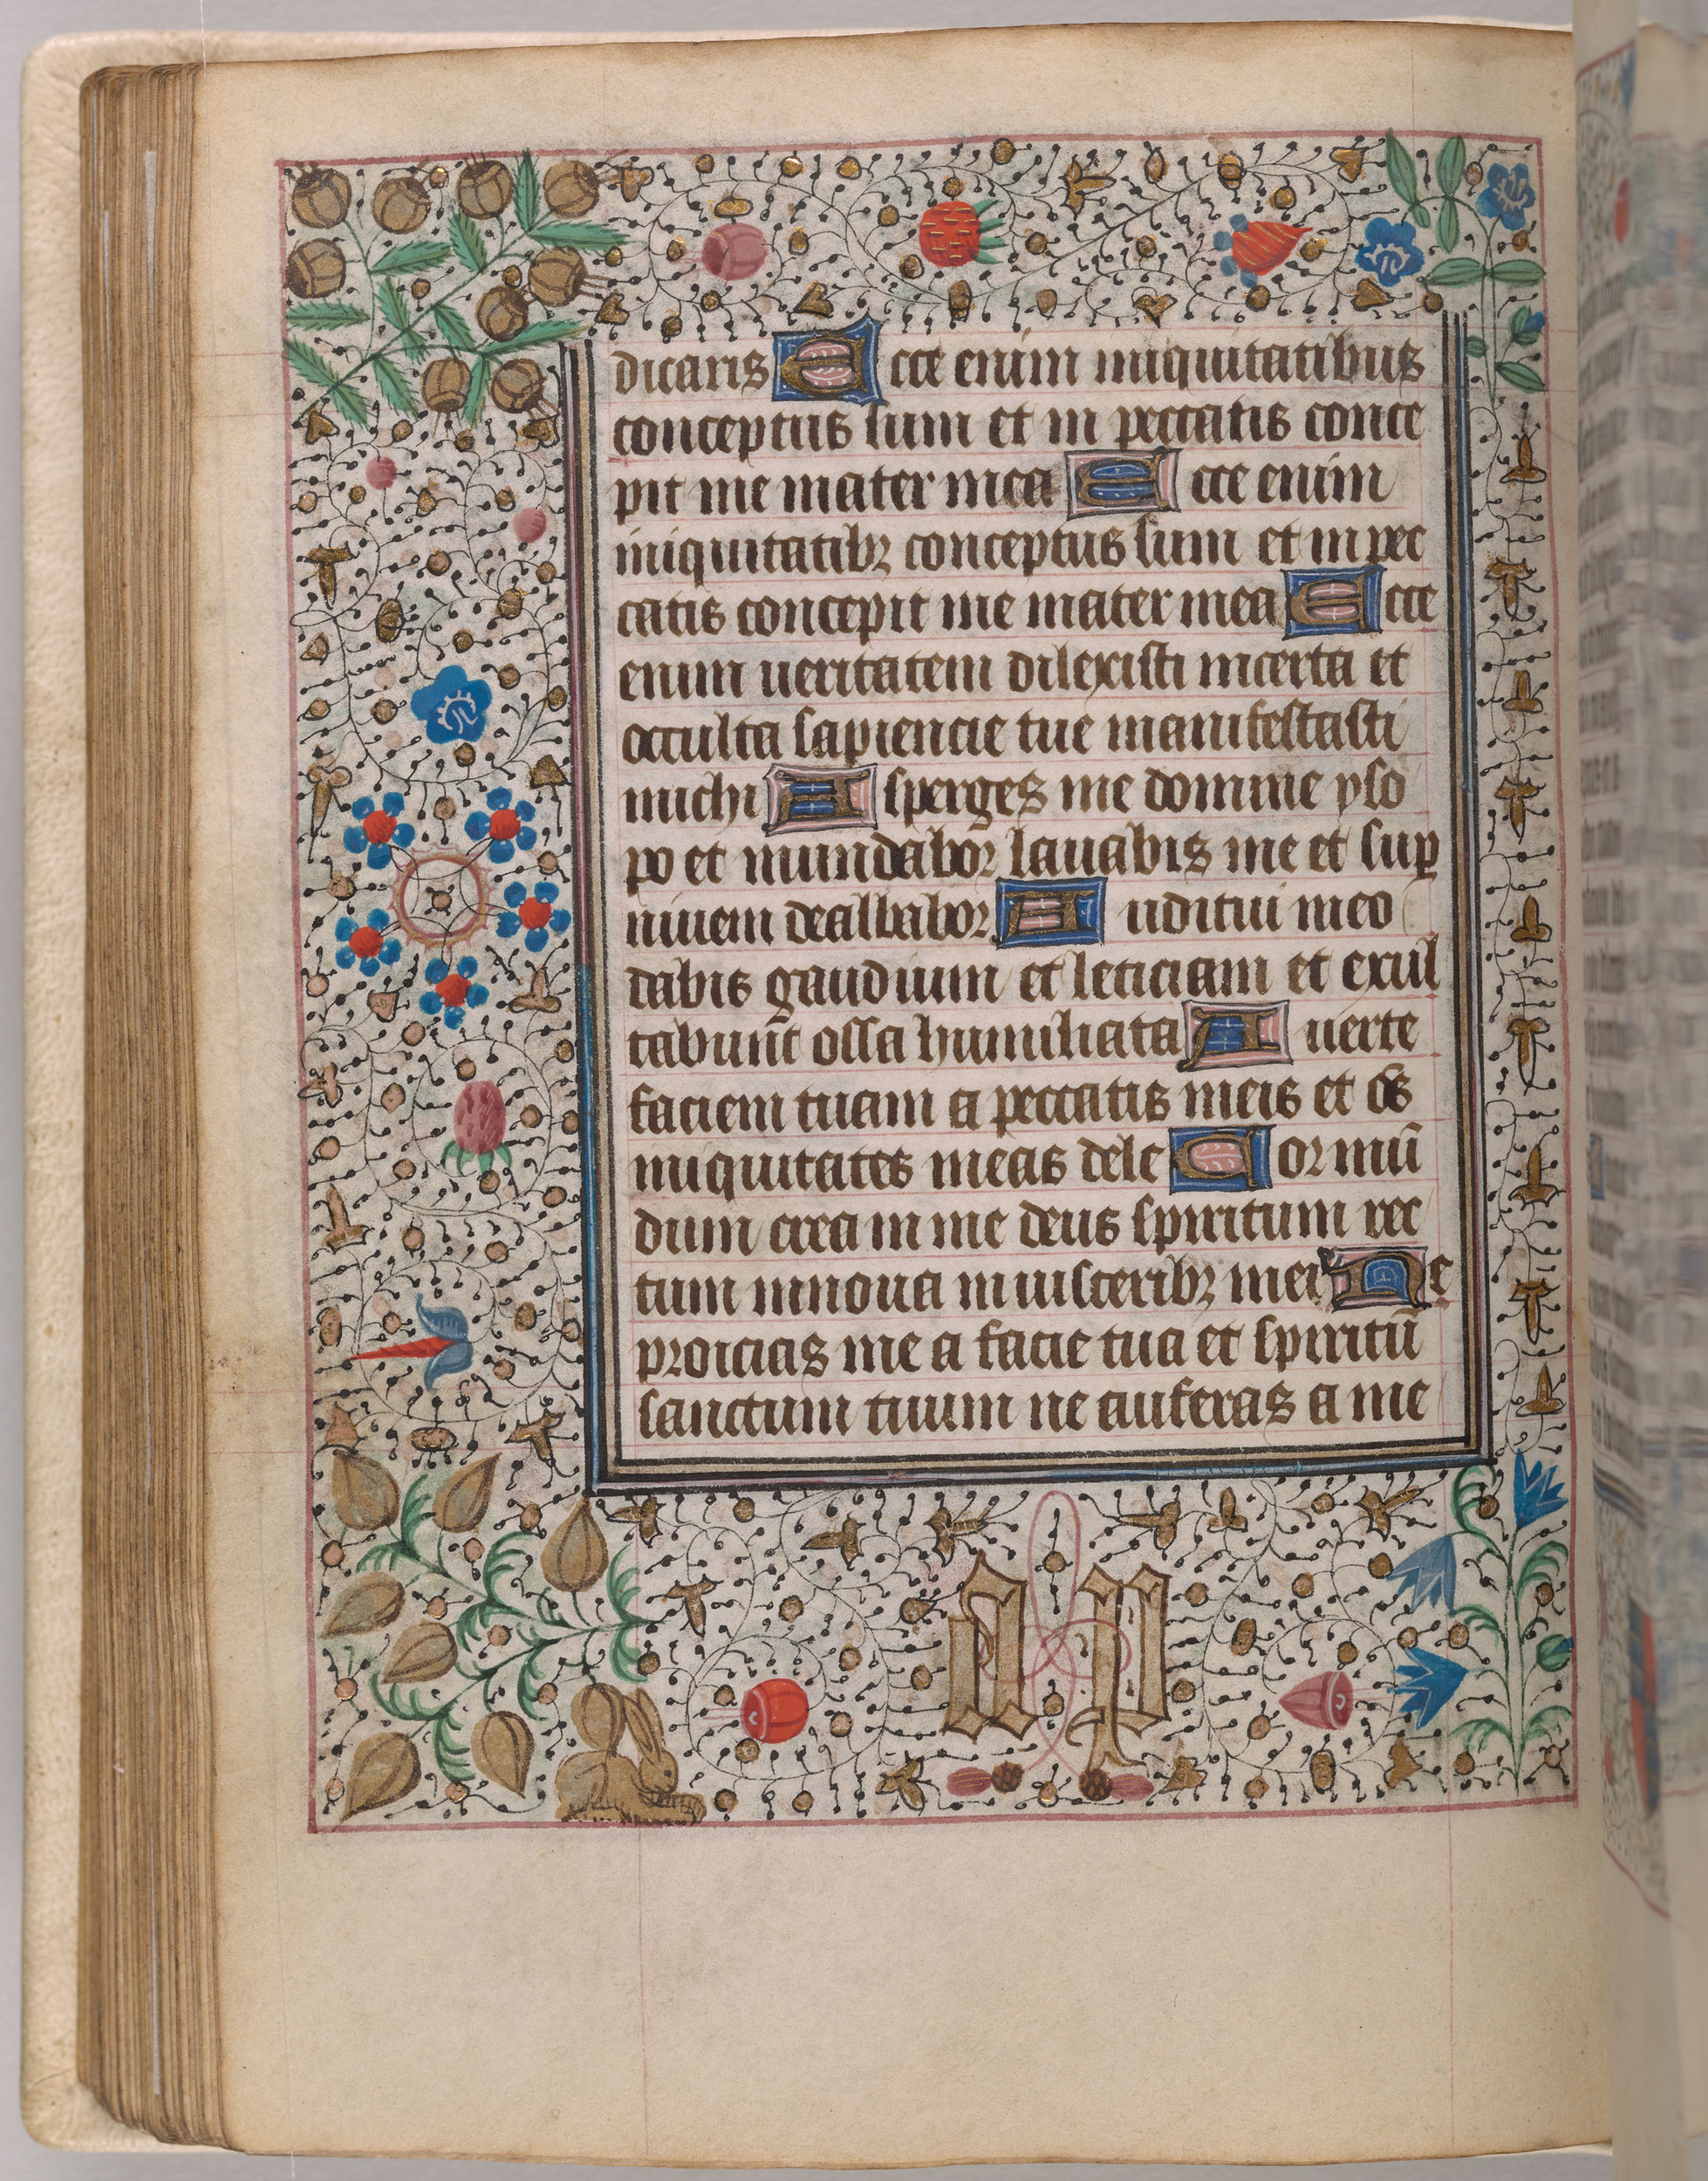 dicaris Ecce enim iniquitatibus
conceptus sum et in peccatis conce
pit me mater mea Ecce enim
iniquitatibꝫ conceptus sum et in pec
catis concepit me mater mea Ecce
enim ueritatem dilexisti incerta et
occulta sapiencie tue manifestasti
michi Asperges me domine yso
po et mundabor lauabis me et suꝑ
niuem dealbabor Auditui meo
dabis gaudium et leticiam et exul
tabunt ossa humiliata Auerte
faciem tuam a peccatis meis et oḿs
iniquitates meas dele Cor mū
dum crea in me deus spiritum rec
tum innoua in uisceribꝫ meis Ne
proicias me a facie tua et spiritū
sanctum tuum ne auferas a me